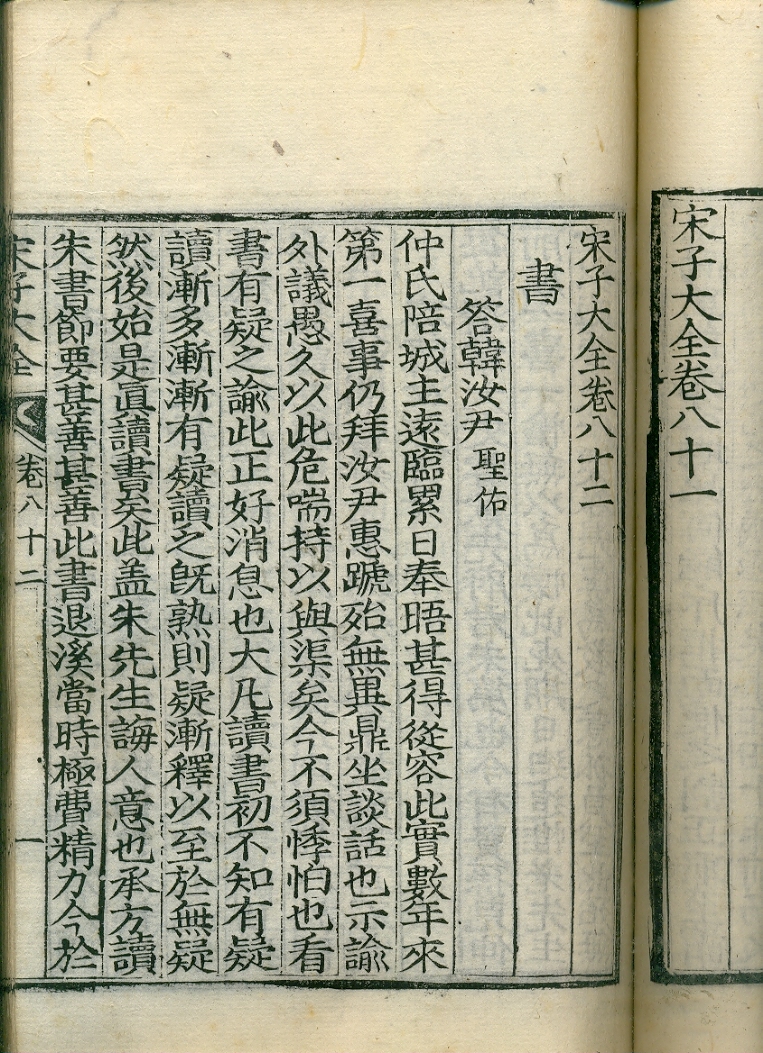 宋子大全卷八十一
宋子大全卷八十二
書
答韓汝尹 聖佑
仲氏陪城主遠臨累日奉晤甚得從容此實數年來
第一喜事仍拜汝尹惠蹏殆無異鼎坐談話也示諭
外議愚久以此危喘持以與渠矣今不須悸怕也看
書有疑之諭此正好消息也大凡讀書初不知有疑
讀漸多漸漸有疑讀之旣熟則疑漸釋以至於無疑
然後始是眞讀書矣此盖朱先生誨人意也承方讀
朱書節要甚善甚善此書退溪當時極費精力今於
宋子大全 卷八十二 一